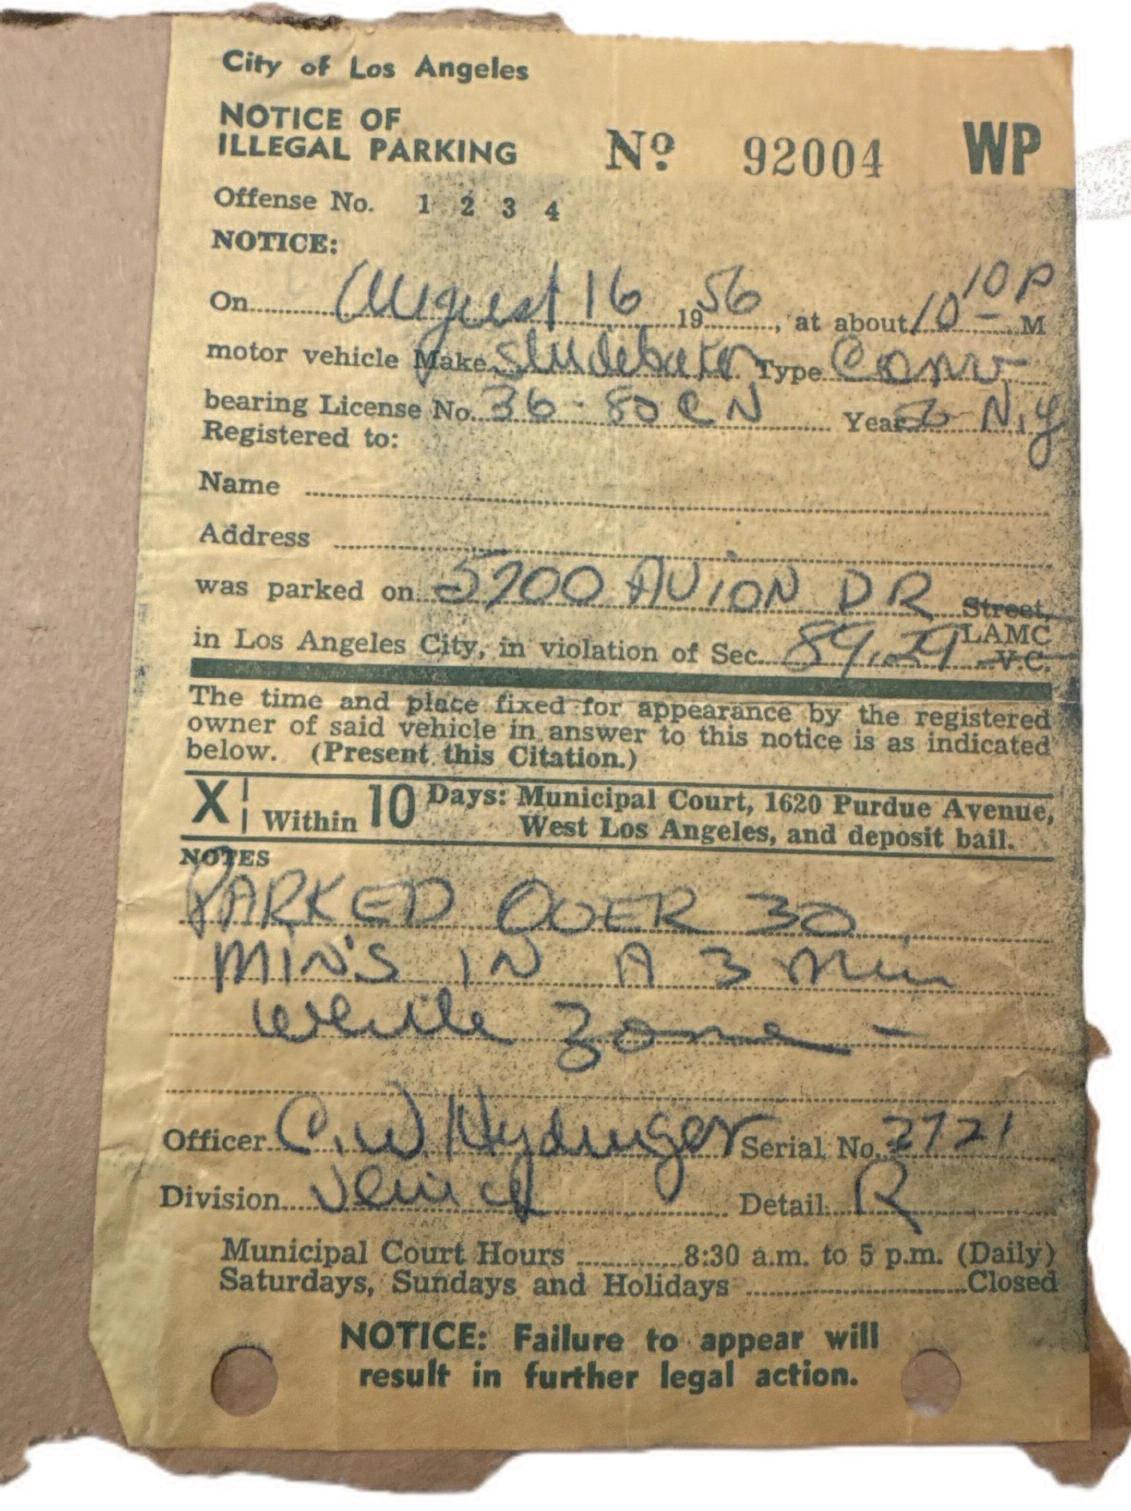 City of Los Angeles
NOTICE OF
ILLEGAL PARKING Nº 92004 WP
Offense No. 1 2 3 4
NOTICE:
On August 16 1956, at about 10 10 P M
motor vehicle Make Studebaker Type Conv
bearing License No. 36-80 CN Year 56 N.Y
Registered to:
Name
Address
was parked on 5700 AVION DR Street,
in Los Angeles City, in violation of Sec. 89.29 LAMC
V.C.
The time and place fixed for appearance by the registered
owner of said vehicle in answer to this notice is as indicated
below. (Present this Citation.)
X Within 10 Days: Municipal Court, 1620 Purdue Avenue,
West Los Angeles, and deposit bail.
NOTES
PARKED OVER 30
MIN'S IN A 3 Min
White Zone -
Officer C.W. Serial No. 2721
Division Venice Detail R
Municipal Court Hours 8:30 a.m. to 5 p.m. (Daily)
Saturdays, Sundays and Holidays Closed
NOTICE: Failure to appear will
result in further legal action.